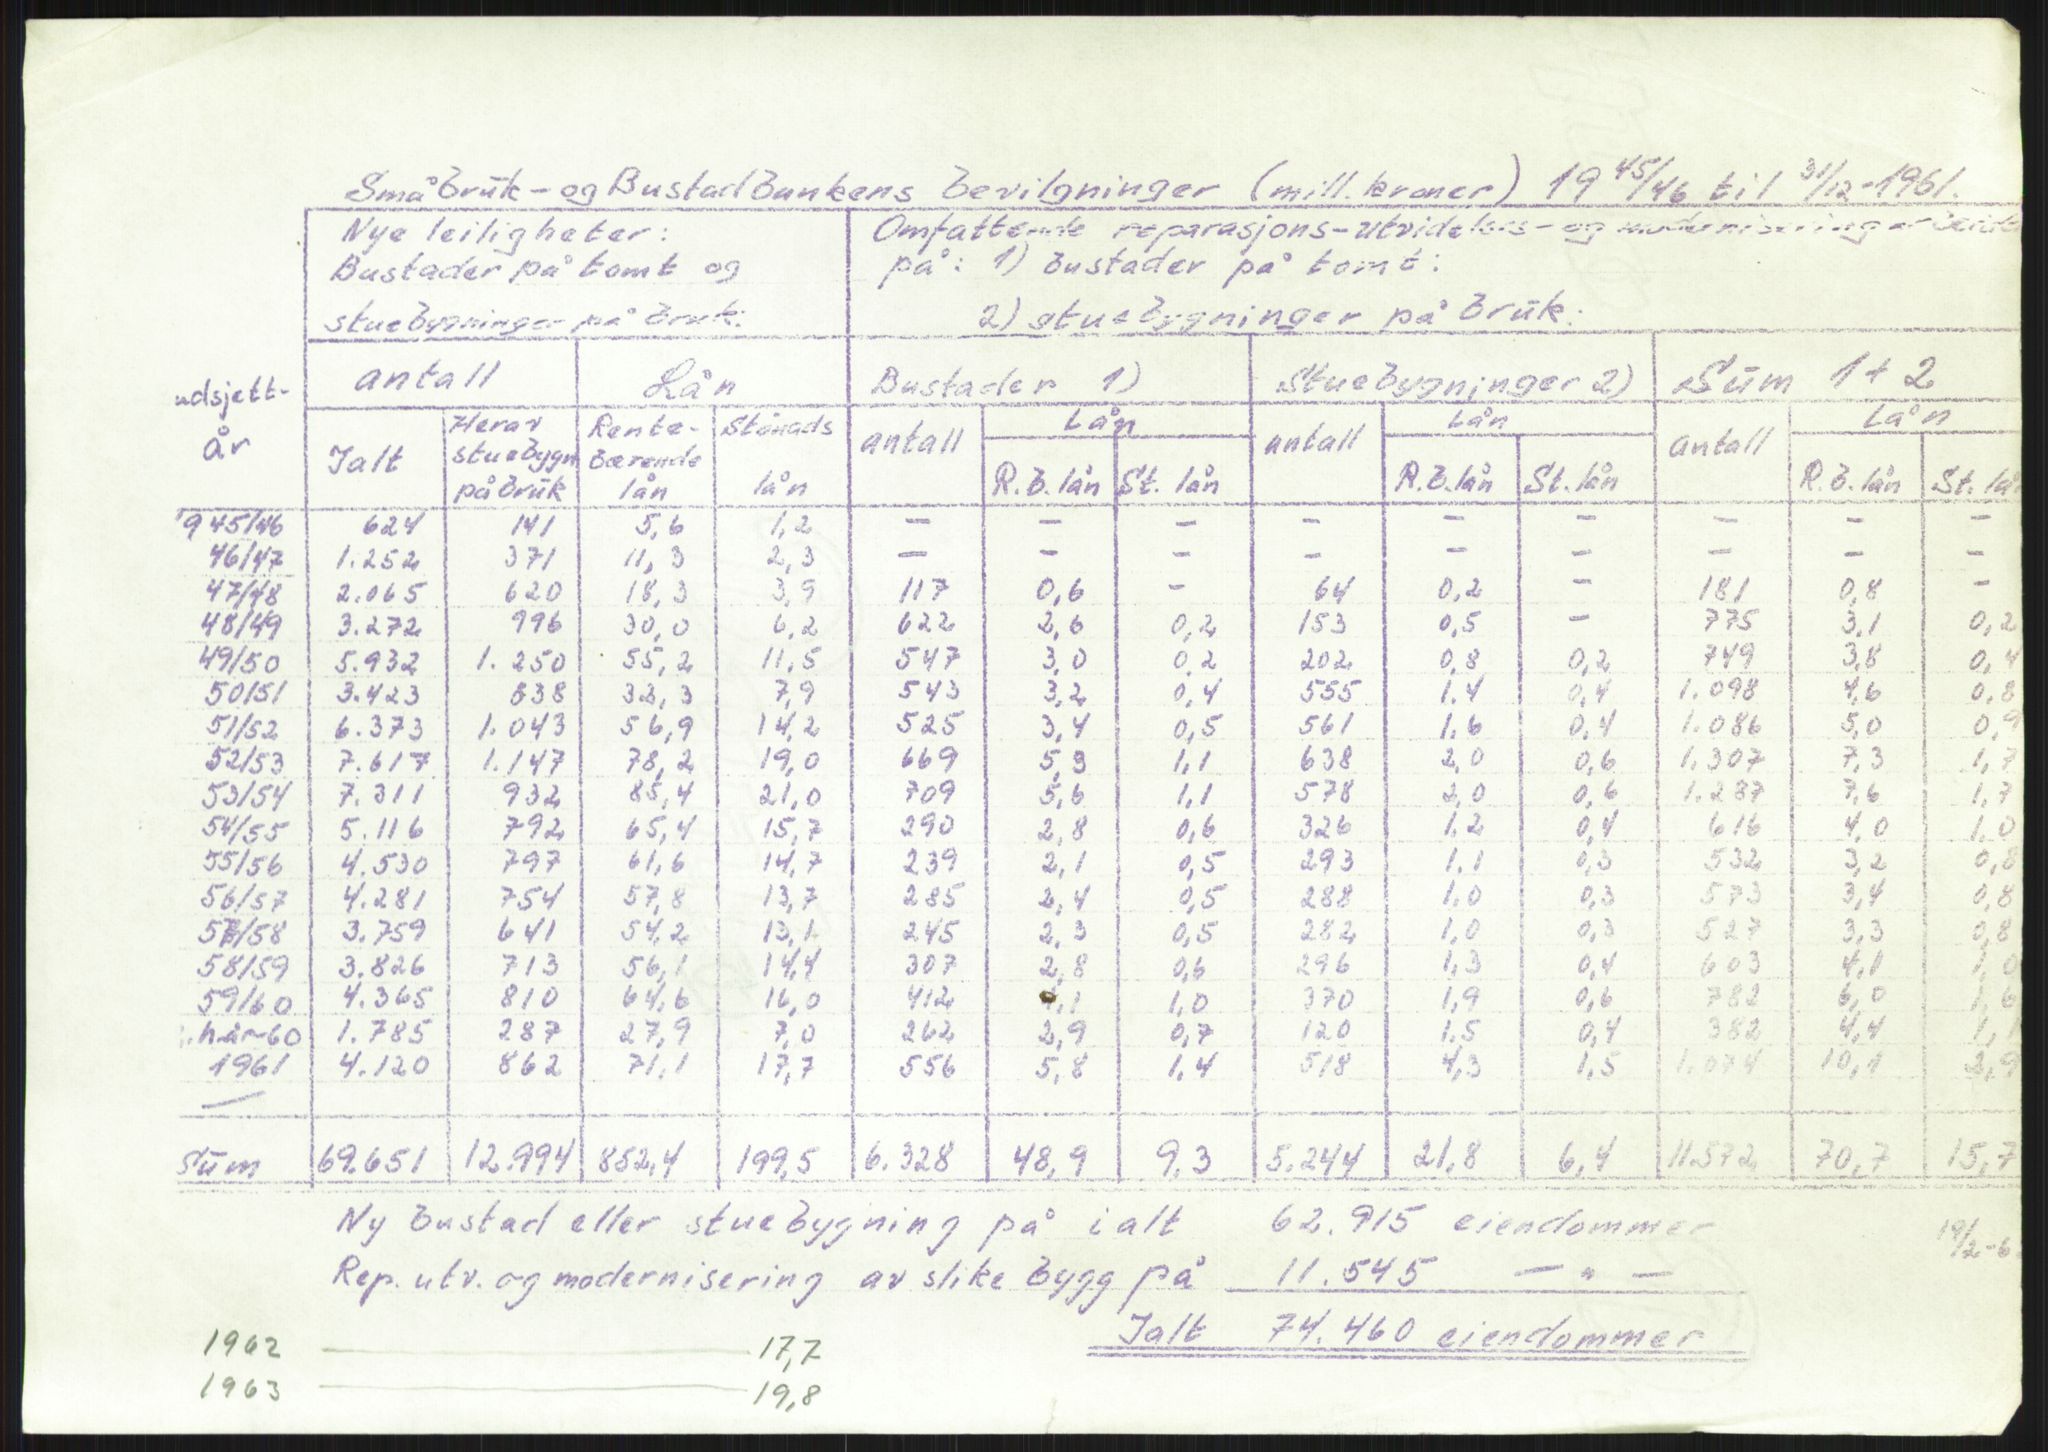 Småbruk- og Bustadbankens bevilgninger (mill. kroner) 19 45/46 til 31/12-1961.
Nye leiligheter: Omfattende reparasjons-utvidelses- og moderniseringsarbeide
Bustader på tomt og på: 1) bustader på tomt:
stuebygninger på bruk: 2) stuebygninger på bruk:
udsjett- antall Lån Bustader 1) Stuebygninger 2) Sum 1+2
år Ialt Herav stuebygn på bruk Rente-bærende lån Stønads lån antall Lån antall Lån antall Lån
R.b.lån St. lån R.b.lån St. lån R.b. lån St. lån
945/46 624 141 5,6 1,2 – – – – – – – – –
46/47 1.252 371 11,3 2,3 – – – – – – – – –
47/48 2.065 620 18,3 3,9 117 0,6 – 64 0,2 – 181 0,8 –
48/49 3.272 996 30,0 6,2 622 2,6 0,2 153 0,5 – 775 3,1 0,2
49/50 5.932 1.250 55,2 11,5 547 3,0 0,2 202 0,8 0,2 749 3,8 0,4
50/51 3.423 838 33,3 7,9 543 3,2 0,4 555 1.4 0,4 1.098 4,6 0,8
51/52 6.373 1.043 56,9 14,2 525 3,4 0,5 561 1.6 0,4 1.086 5,0 0,9
52/53 7.617 1.147 78,2 19,0 669 5,3 1,1 638 2,0 0,6 1.307 7,3 1,7
53/54 7.311 932 85,4 21,0 709 5,6 1,1 578 2,0 0,6 1.287 7,6 1,7
54/55 5.116 792 65,4 15,7 290 2,8 0,6 326 1.2 0,4 616 4,0 1,0
55/56 4.530 797 61,6 14,7 239 2,1 0,5 293 1.1 0,3 532 3,2 0,8
56/57 4.281 754 57,8 13,7 285 2,4 0,5 288 1.0 0,3 573 3,4 0,8
57/58 3.759 641 54,2 13,1 245 2,3 0,5 282 1,0 0,3 527 3,3 0,8
58/59 3.826 713 56,1 14,4 307 2,8 0,6 296 1,3 0,4 603 4,1 1,0
59/60 4.365 810 64,6 16,0 412 4,1 1,0 370 1,9 0,6 782 6,0 1,6
.h.år-60 1.785 287 27,9 7,0 262 2,9 0,7 120 1,5 0,4 382 4,4 1,1
1961 4.120 862 71,1 17,7 556 5,8 1,4 518 4,3 1,5 1.074 10,1 2,9
Sum 69.651 12.994 852,4 199,5 6.328 48,9 9,3 5.244 21,8 6,4 11.572 70,7 15,7
Ny bustad eller stuebygning på ialt 62.915 eiendommer
19/2-6
Rep. utv. og modernisering av slike bygg på 11.545 — " —
Ialt 74.460 eiendommer
1962 — 17,7
1963 — 19,8